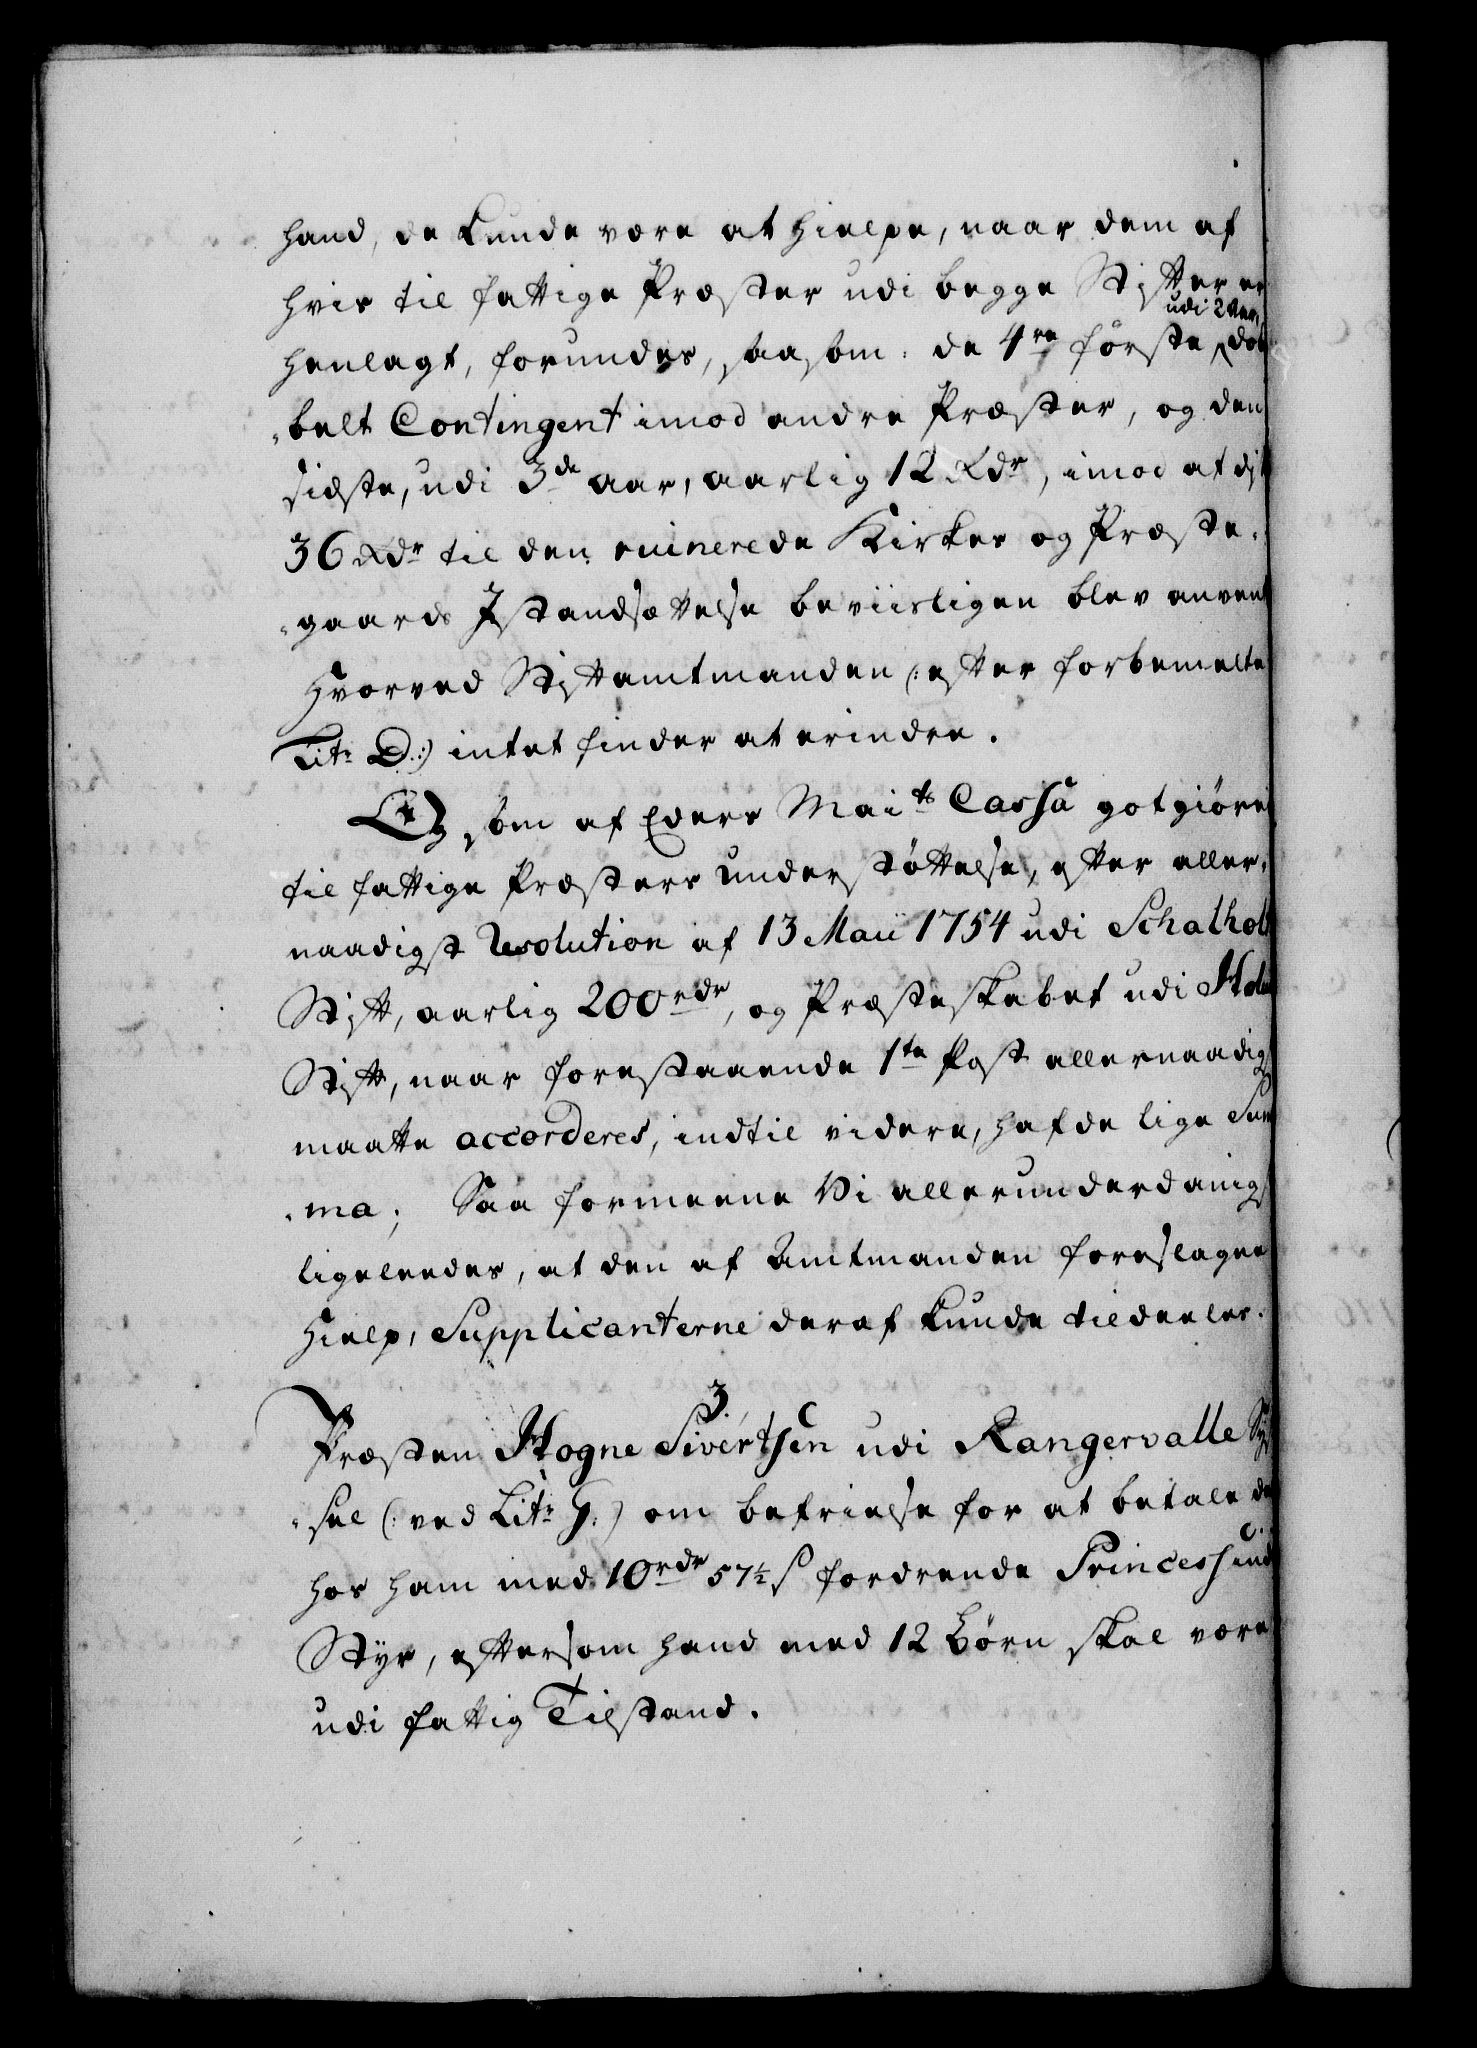 hand, de kunde være at hielpe, naar dem af
hvis til fattige Præster udi begge Stifter er
udi 2 Aar,
henlagt, forundes, saasom: de 4re første dob
belt Contingent imod andre Præster, og den
sidste, udi 3de aar, aarlig 12 Rdr, imod at disse
36 Rdr til den ruinerede Kirkes og Præste-
gaards Istandsættelse beviisligen blev anvent
Hvorved Stiftamtmanden (: efter forbemelte
Litr D:) intet finder at erindre.
Og som af Eders Maits Cassa gotgiøres
til fattige Præsters understøttelse, efter aller-
naadigst Resolution af 13 Maii 1754 udi Schalholt
Stift, aarlig 200 rdr, og Præsteskabet udi Hole
Stift, naar forestaaende 1te Post allernaadigst
maatte accorderes, indtil videre, hafde lige Sum
ma; Saa formeene Vi allerunderdanigst
ligeleedes, at den af Amtmanden foreslagne
Hielp, Supplicanterne deraf kunde tildeeles.
3.
Præsten Hogne Sivertsen udi Rangervalle Sys
sel (: ved Litr G:) om befrielse for at betale de
hos ham med 10 rdr 57½ s fordrende Princessinde
Styr, eftersom hand med 12 Børn skal være
udi fattig Tilstand.